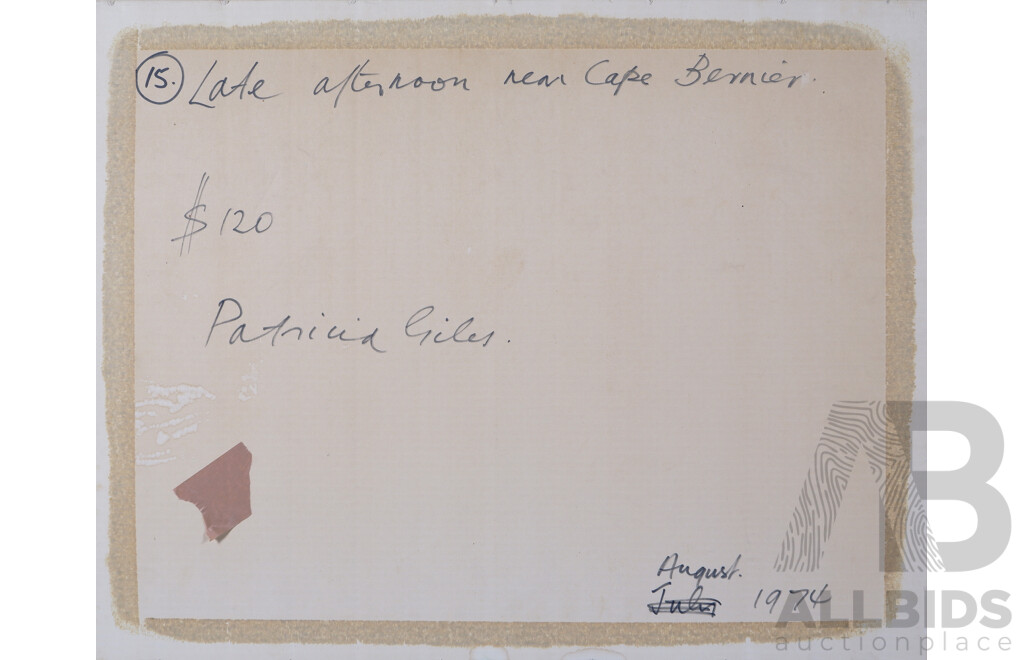 15. Late afternoon near Cape Bernier.
$120
Patricia Giles.
August.
July 1974
AB
ALLBIDS
auctionplace